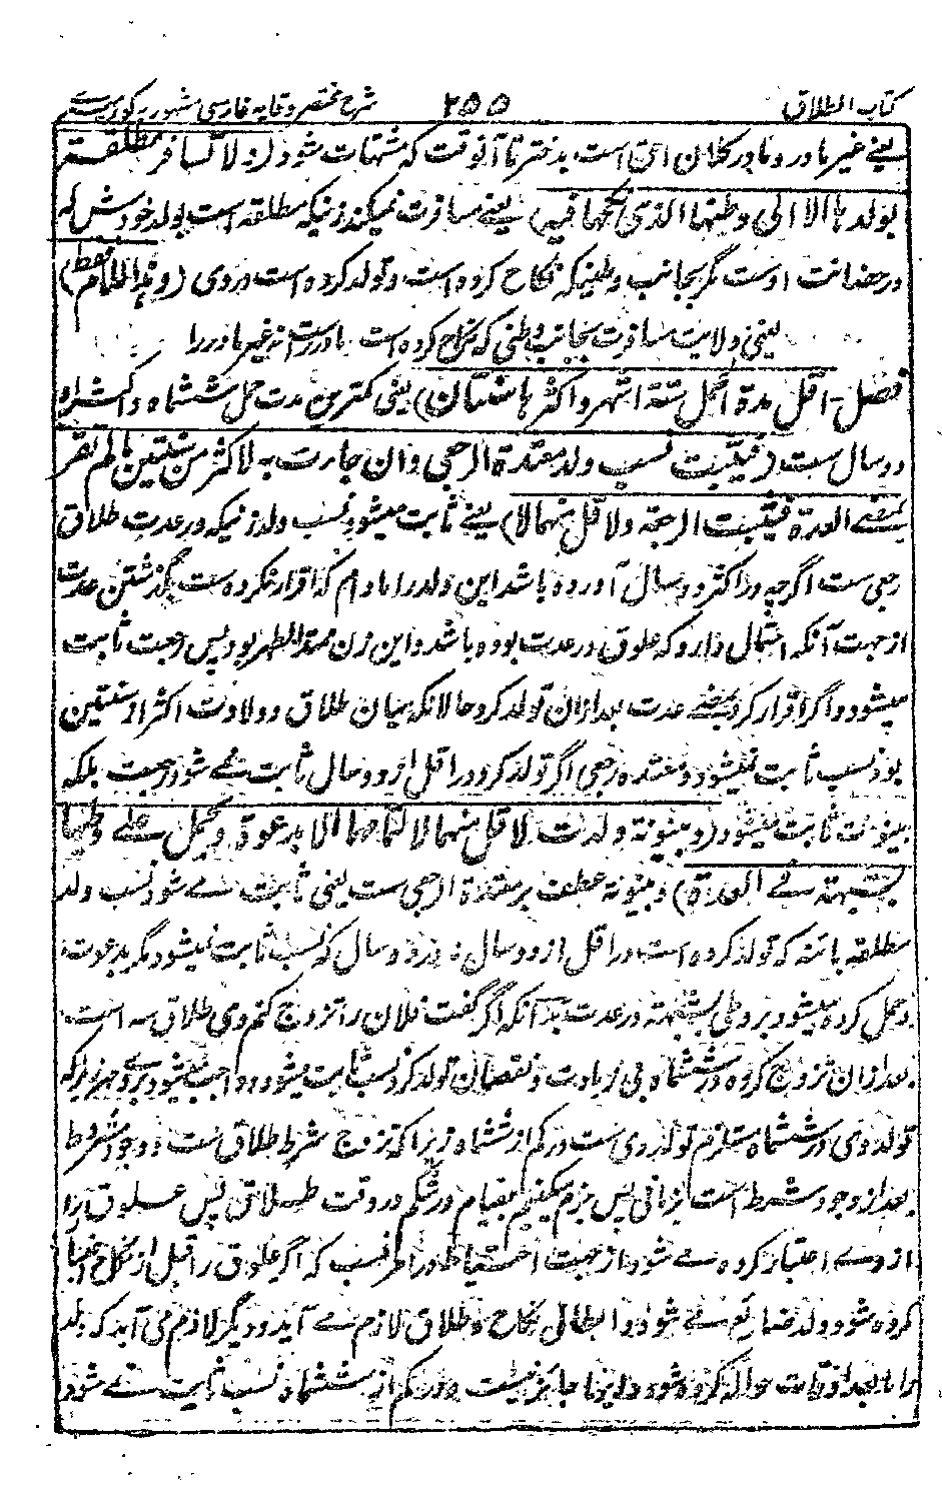 کتاب الطلاق ۲۵۵ شرح مختصر وقایه فارسی مشهور به کور میر
یعنے غیر مادر و مادر کلان احق است بدختر تا آنوقت که مشتهات شود (و لا تسافر مطلقة
بولدها الا الی وطنها الذی نکحها فیه) یعنے مسافرت نمیکند زنیکه مطلقه است بولد خودش که
در حضانت اوست مگر بجانب وطنیکه نکاح کرده است و تولد کرده است در وی (و هذا للام فقط)
یعنی ولایت مسافرت بجانب وطنی که نکاح کرده است مادر راست نه غیر مادر را
فصل - اقل مدة الحمل ستة اشهر و اکثرها سنتان) یعنی کمترین مدت حمل ششماه و اکثر او
دو سال ست (فیثبت نسب ولد معتدة الرجعی و ان جاءت به لاکثر من سنتین ما لم تقر
بمضے العدة فیثبت الرجعة و لاقل منهما لا) یعنے ثابت میشود نسب ولد زنیکه در عدت طلاق
رجعی ست اگرچه در اکثر دو سال آورده باشد این ولد را مادام که اقرار نکرده ست بگذشتن عدت
از جهت آنکه احتمال دارد که علوق در عدت بوده باشد و این زن ممتد الطهر بود پس رجعت ثابت
میشود و اگر اقرار کرد بمضے عدت بعد ازان تولد کرد حالانکه میان طلاق و ولادت اکثر از سنتین
بود نسب ثابت نمیشود و معتده رجعی اگر تولد کرد در اقل از دو سال ثابت نمے شود رجعت بلکه
بینونت ثابت میشود (و مبتوتة ولدت لاقل منهما لا لتمامهما الا بدعوة و یحمل علے وطیها
بشبهة فے العدة) و مبتوته عطف بر معتدة الرجعی ست یعنی ثابت مے شود نسب ولد
مطلقه بائنه که تولد کرده است در اقل از دو سال نه در دو سال که نسب ثابت نمیشود مگر بدعوت
و حمل کرده میشود بر وطی بشبهة در عدت بدانکه اگر گفت فلان را تزوج کنم وی طلاق سه است
بعد ازان تزوج کرد و در ششماه بی زیادت و نقصان تولد کرد نسب ثابت میشود و واجب میشود بر وے مهر زیراکه
تولد وی در ششماه مستلزم تولد وی ست در کم از ششماه زیرا که تزوج شرط طلاق ست و وجود مشروط
بعد از وجود شرط است بزمانی پس جزم میکنیم بقیام در شکم در وقت طلاق پس علوق را
از وے اعتبار کرده مے شود از جهت احتیاط در امر نسب که اگر علوق را قبل از نکاح اعتبار
کرده شود ولد ضایع مے شود و ابطال نکاح و طلاق لازم مے آید و دیگر لازم می آید که ولد
را با بعد اوقات حواله کرده شود و اینها جایز نیست و در کم از ششماه نسب ثابت نمے شود